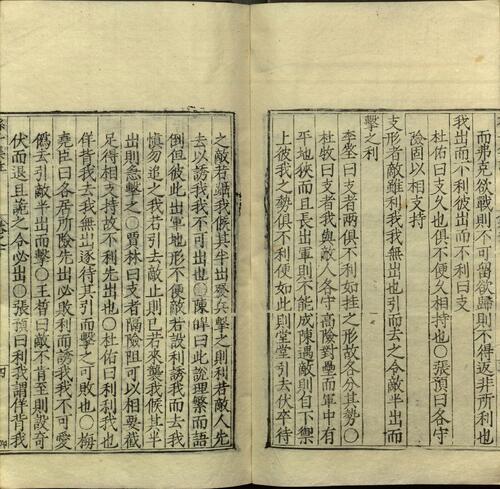 而弗克欲戰則不可留欲歸則不得返非所利也
我出而不利彼出而不利曰支
杜佑曰支久也俱不便久相持也〇張預曰各守
險固以相支持
支形者敵雖利我我無出也引而去之令敵半出而
擊之利
李筌曰支者兩俱不利如挂之形故各分其勢〇
杜牧曰支者我與敵人各守高險對壘而軍中有
平地狹而且長出軍則不能成陳遇敵則自下禦
上彼我之勢俱不利便如此則堂堂引去伏卒待
之敵若躡我候其半出發兵擊之則利若敵人先
去以誘我我不可出也〇陳皥曰此說理繁而語
倒但彼此出軍地形不便敵若設利誘我而去我
慎勿追之我若引去敵止則已若來襲我候其半
出則急擊之〇賈林曰支者隔險阻可以相要截
足得相支持故不利先出也〇杜佑曰利利我也
佯背我去我無出逐待其引而擊之可敗也〇梅
堯臣曰各居所險先出必敗利而誘我我不可愛
僞去引敵半出而擊〇王晳曰敵不肯至則設奇
伏而退且詭之令必出〇張預曰利我謂佯背我
四